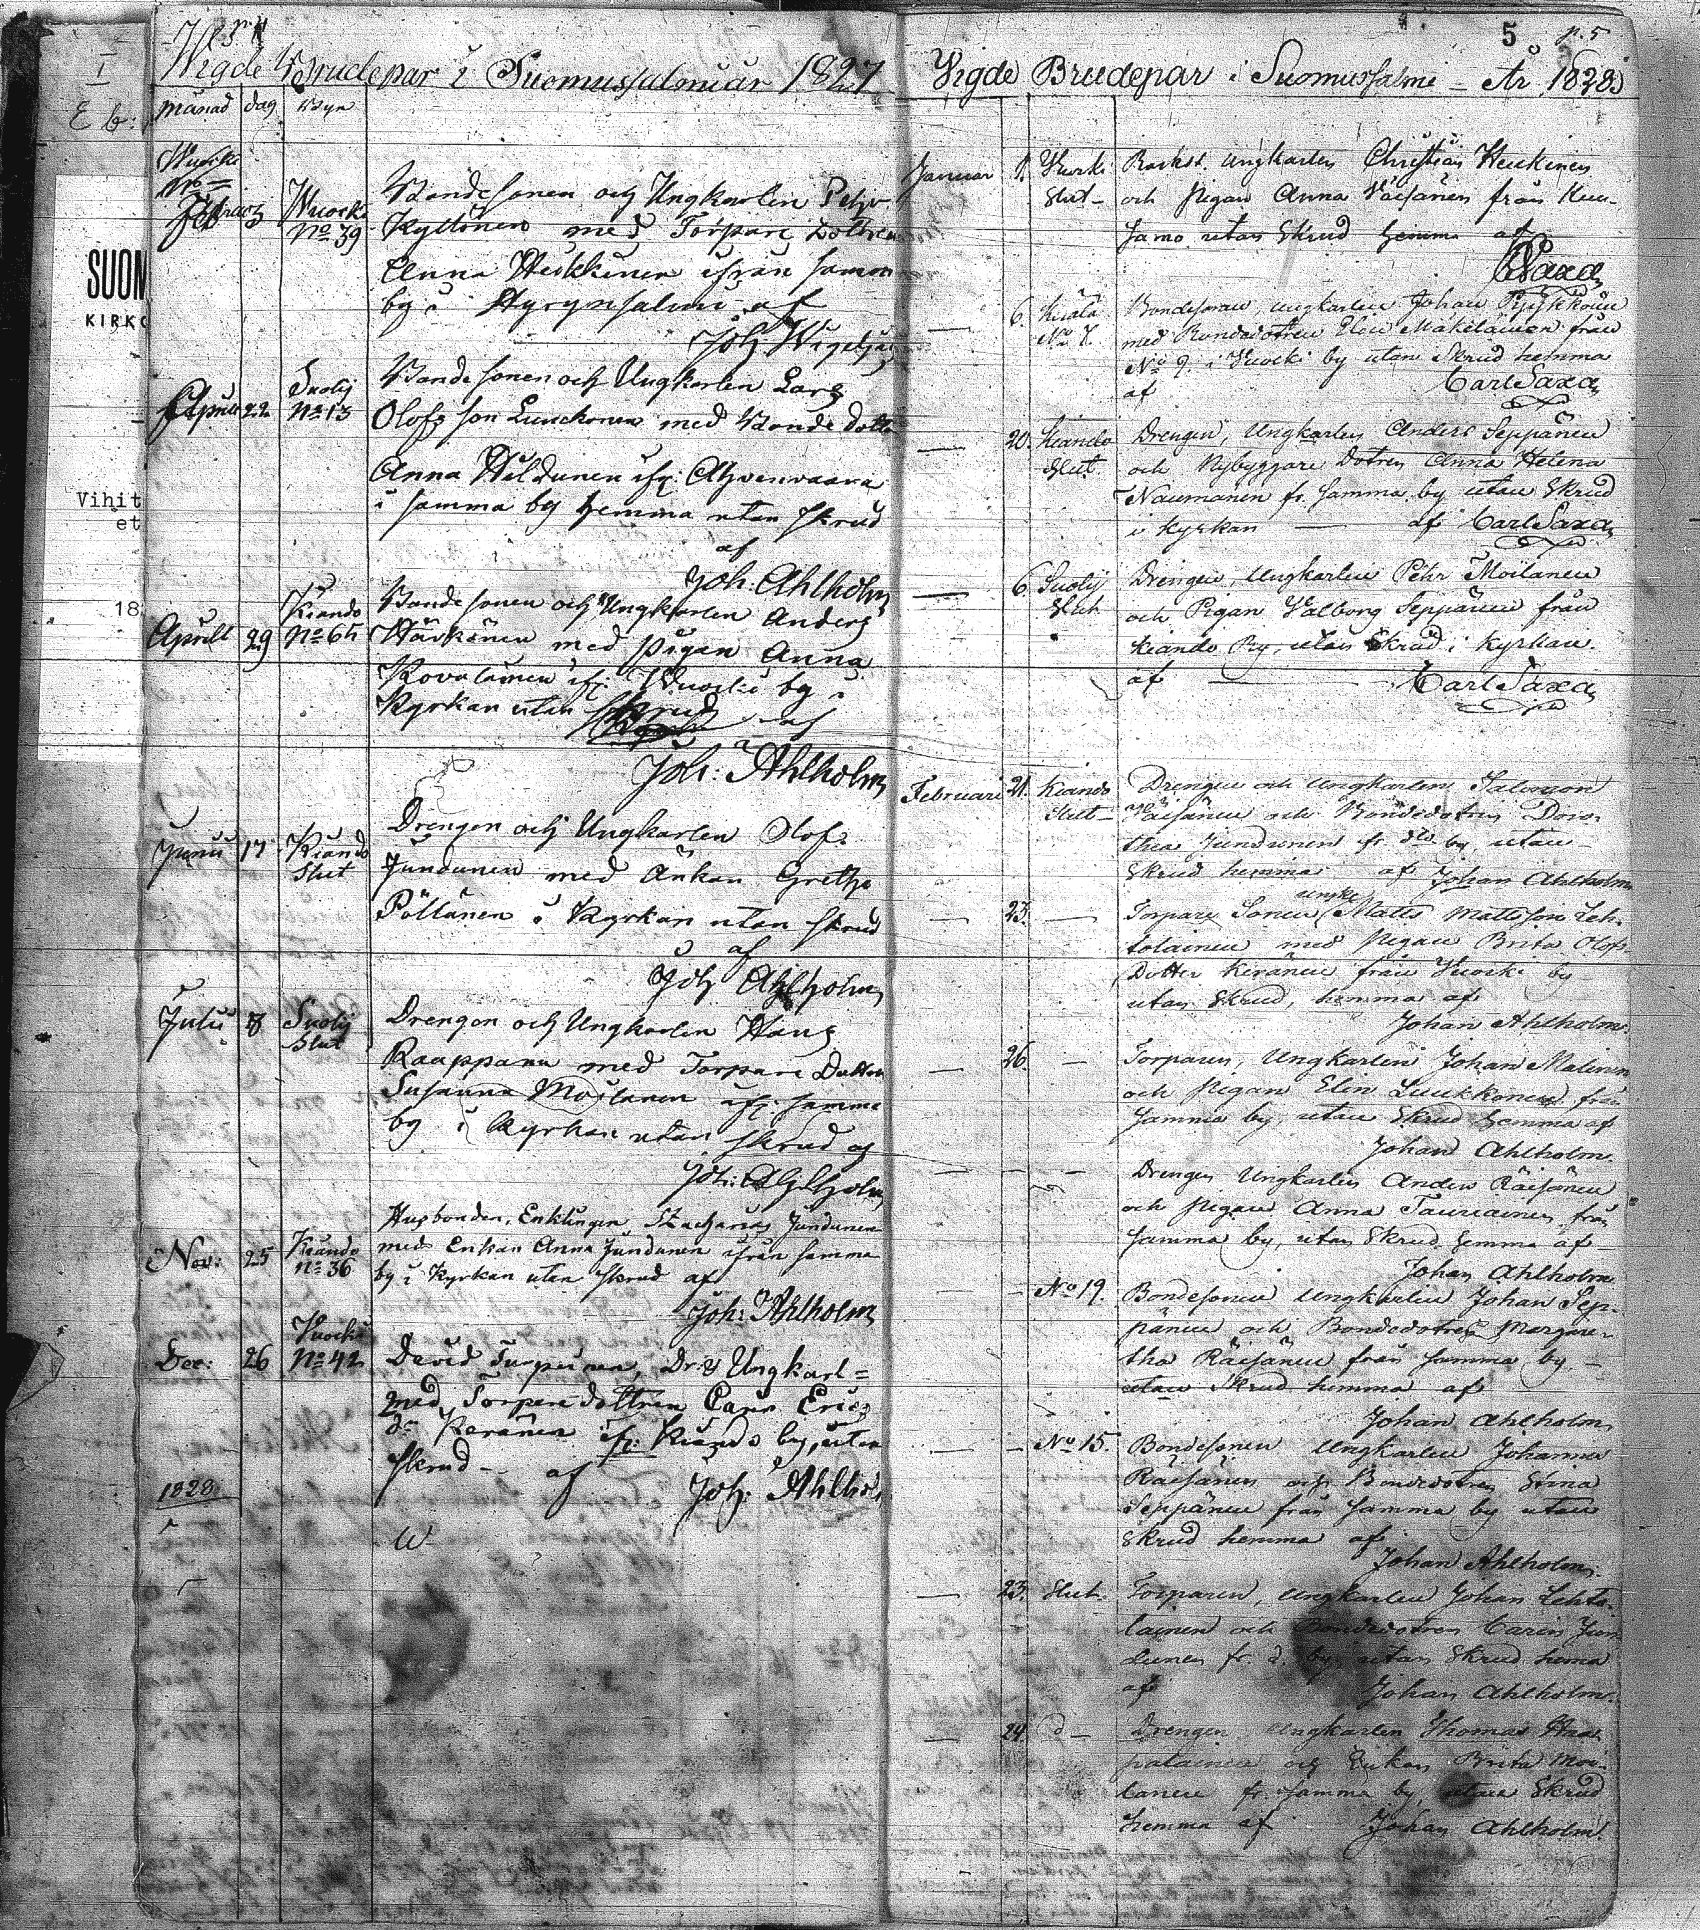 Wigde Brudepar i Suomussalmi år 1827
månad dag Byn
Wuocki
No
Februar 3 Wuocki No 39
Bondesonen och Ungkarlen Pehr
Kyllönen med Torpare Dottren
Anna Heikkinen ifrån samma
by i Hyrynsalmi af
Joh
April 22 Suolij No 13
Bondesonen och Ungkarlen Lars
Olofsson Luuckonen med Bonde Dottr
Anna ifr: Ahvenvaara
i samma by hemma utan skrud
af
Joh: Ahlholm
Aprill 29 Kiando No 65
Bondesonen och Ungkarlen Anders
Härkönen med Pigan Anna
Kovalainen ifr: Wuocki by i
Kyrkan utan skrud
af
Joh: Ahlholm
Junii 17 Kiando Slut
Drengen och Ungkarlen Olof
Jundunen med Änkan Gretha
Pöllänen i Kyrkan utan skrud
af
Joh Ahlholm
Julii 8 Suolij Slut
Drengen och Ungkarlen Hans
Raappana med Torpare Dottren
Susanna Moilanen ifr: samma
by i Kyrkan utan skrud af
Joh: Ahlholm
Nov: 25 Kiando No 36
Husbonden, Enklingen, Zacharias Jundunen
med Enkan Anna Jundunen ifrån samma
by i Kyrkan utan skrud af
Joh: Ahlholm
Dec: 26 Vuocki No 42
David Dr: & Ungkarl=
med Torpare dottren Carin Erics
dr Keränen ifr: Kiando by, utan
skrud - af Joh: Ahlhol
1828
5 p. 5
Vigde Brudepar i Suomussalmi - År 1828
Januar Vuocki Slut-
Backst. Ungkarlen Christian Heikkinen
och Pigan Anna Väisänen från Kuu-
samo utan Skrud hemma af
C Saxa
6. No 7.
Bondesonen, ungkarlen Johan Pyykkönen
med Bondedotren Elin Mäkeläinen från
No 9 i Vuocki by utan Skrud hemma
af Carl Saxa
20. Kiando Slut.
Drengen, Ungkarlen Anders Seppänen
och Nybyggare Dotren Anna Helena
Naumanen fr. samma by utan Skrud
i Kyrkan - af Carl Saxa
6. Suolij Slut
Drengen, Ungkarlen Pehr Moilanen
och Pigan Valborg Seppänen från
Kiando By, utan Skrud i Kyrkan.
af Carl Saxa
Februari 21. Kiando Slut-
Drengen och Ungkarlen Salomon
Räisänen och Bondedotren Doro-
thea Jundunen fr. do by, utan
Skrud hemma af Johan Ahlholm
23. -
Torpare Sonen ungk. Matts Mattsson Leh-
tolainen med Pigan Brita Olofs
Dotter Keränen från Vuocki by
utan Skrud, hemma af
Johan Ahlholm.
26. -
Torparen, Ungkarlen Johan Malinen
och Pigan Elin Luukkonen från
samma by, utan Skrud hemma af
Johan Ahlholm.
Drengen Ungkarlen Anders Räisänen
och Pigan Anna Tauriainen från
samma by, utan Skrud hemma af
Johan Ahlholm
- - No 19.
Bondesonen Ungkarlen Johan Sep-
pänen och Bondedotren Margare-
tha Räisänen från samma by -
utan Skrud hemma af
Johan Ahlholm
- - No 15.
Bondesonen Ungkarlen Johannes
Räisänen och Bondedotren Stina
Seppänen från samma by utan
Skrud hemma af
Johan Ahlholm.
23. Slut.
Torparen, Ungkarlen Johan Lehto-
lainen och Bondedotren Carin Jun
dunen fr. d. by utan Skrud hema
af Johan Ahlholm.
24. d -
Drengen Ungkarlen Thomas Haa
patainen och Enkan Brita Moi-
lanen fr. samma by, utan Skrud
hemma af Johan Ahlholm.
SUOM
KIRKO
Vihit
et
18